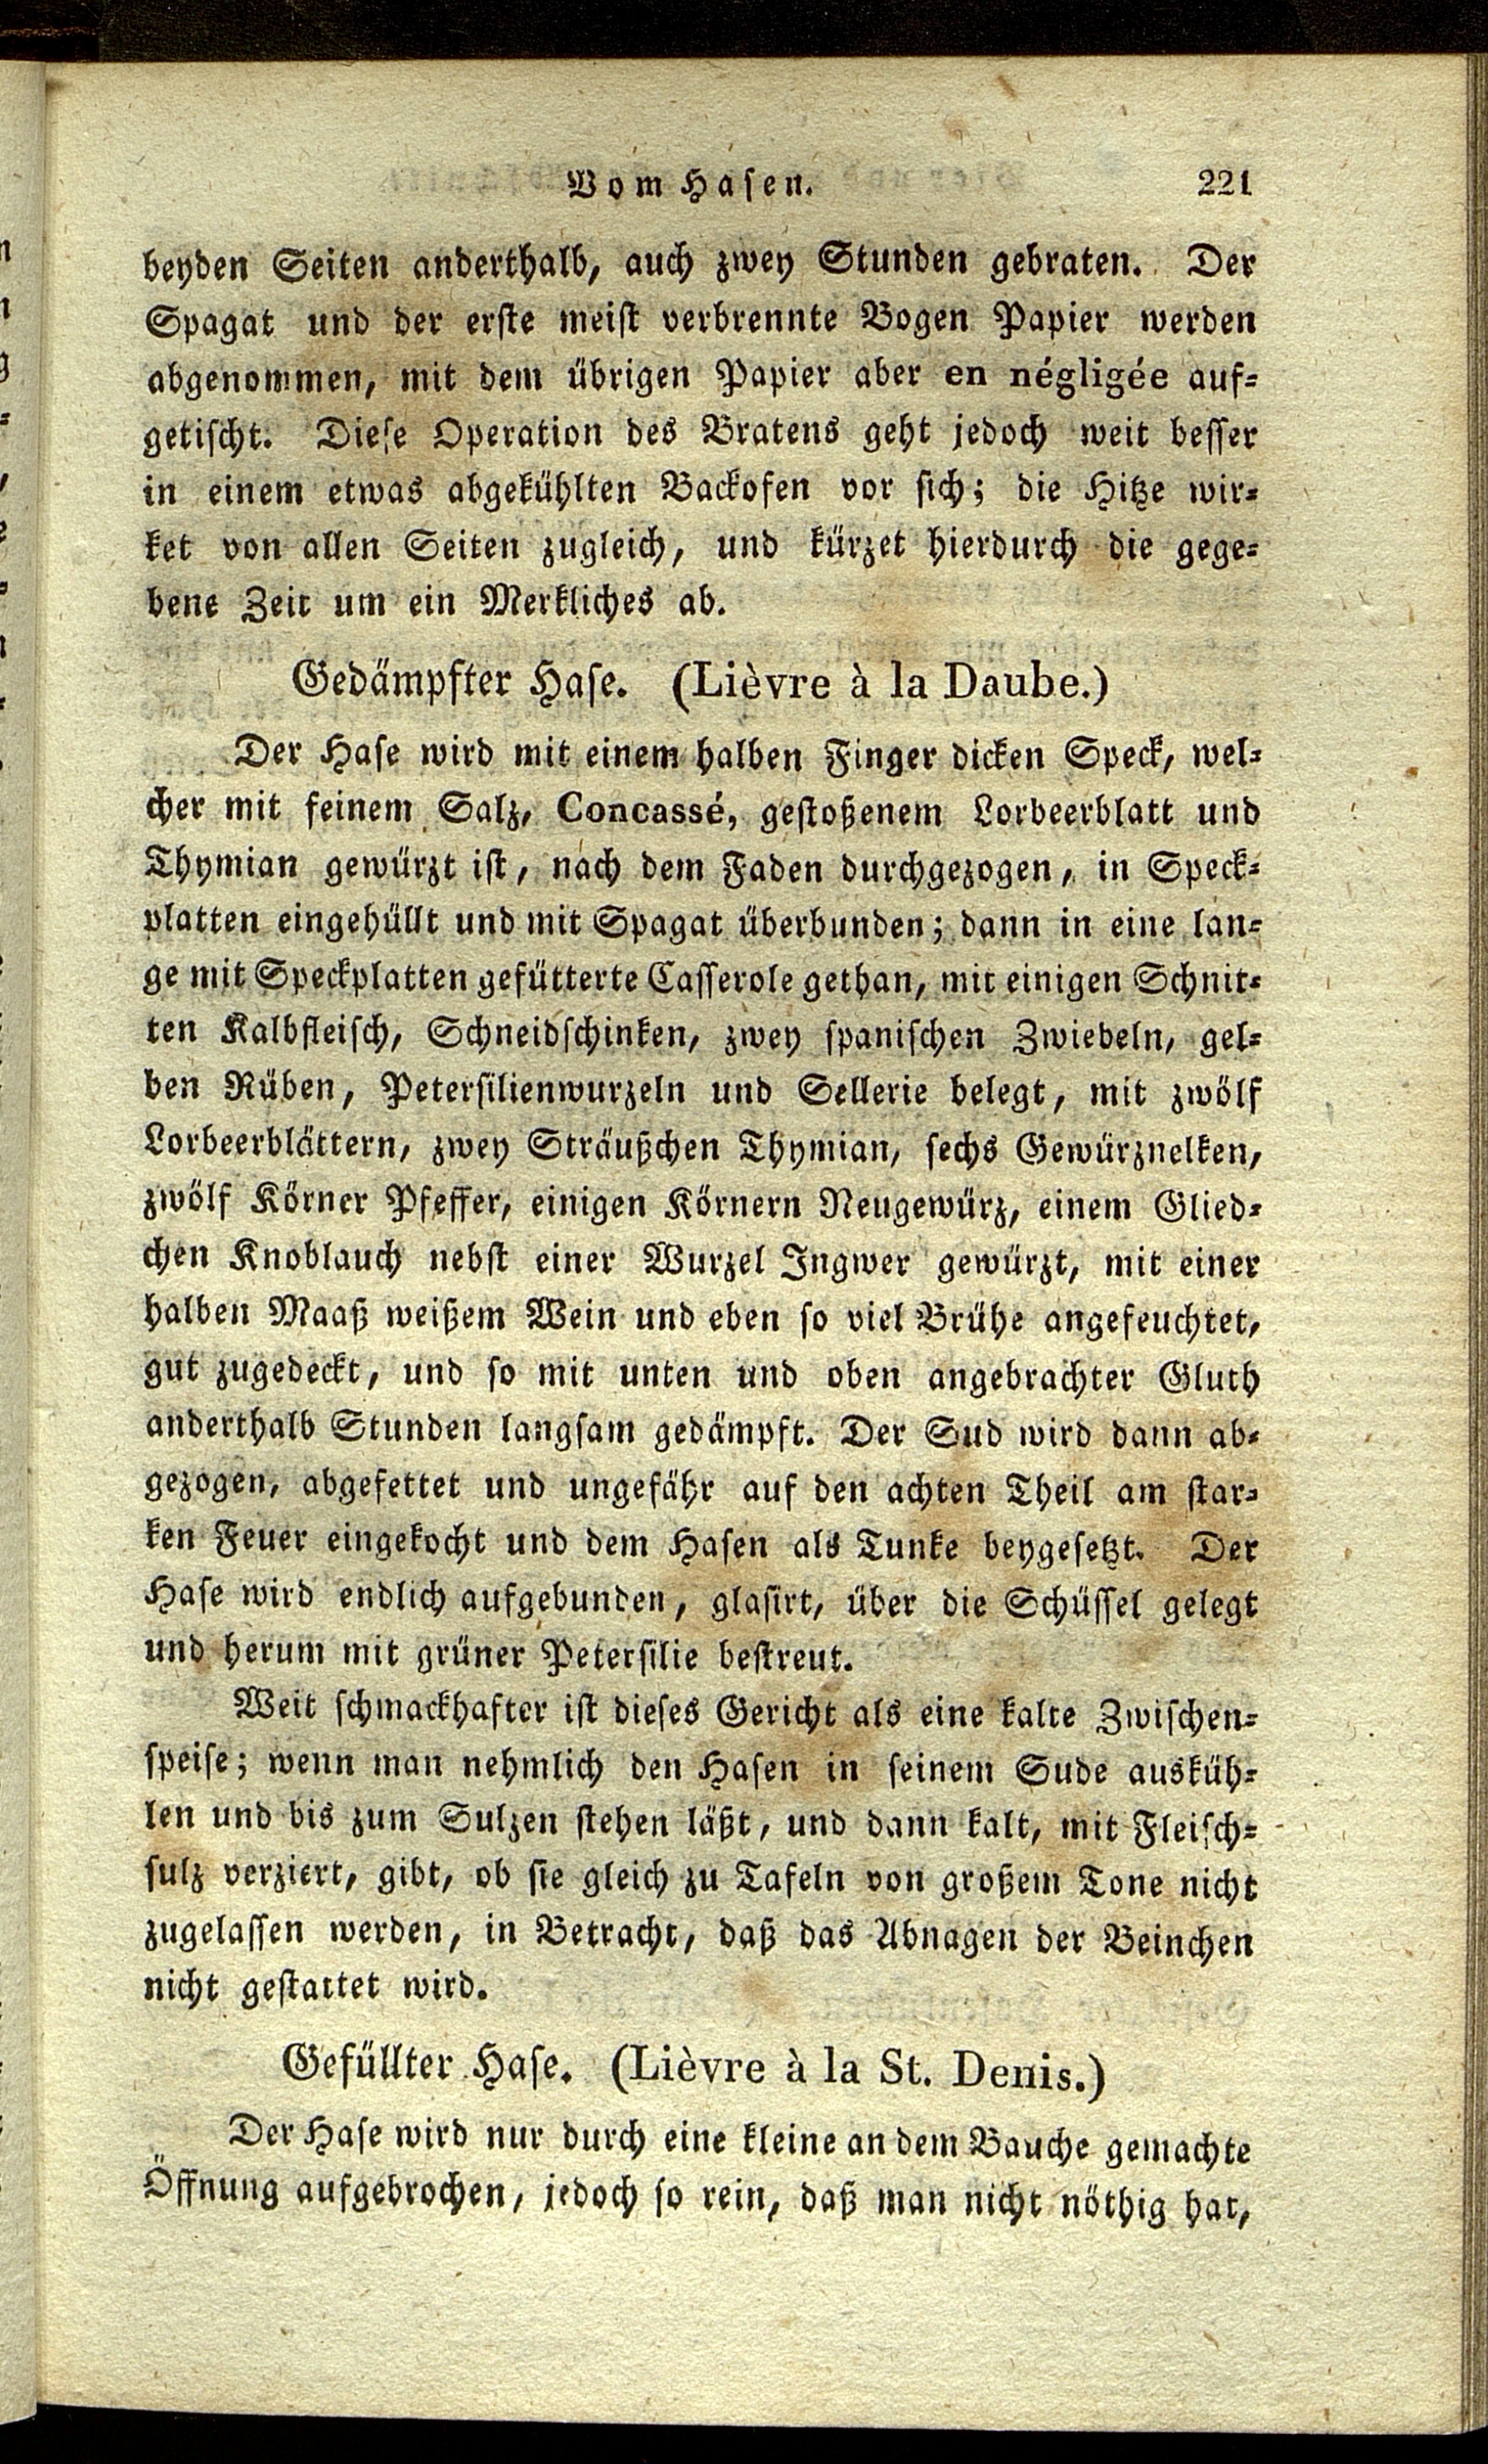 Vom Hasen. 221
beyden Seiten anderthalb, auch zwey Stunden gebraten. Der
Spagat und der erste meist verbrennte Bogen Papier werden
abgenommen, mit dem übrigen Papier aber en négligée auf-
getischt. Diese Operation des Bratens geht jedoch weit besser
in einem etwas abgekühlten Backofen vor sich; die Hitze wir-
ket von allen Seiten zugleich, und kürzet hierdurch die gege-
bene Zeit um ein Merkliches ab.
Gedämpfter Hase. (Lièvre à la Daube.)
Der Hase wird mit einem halben Finger dicken Speck, wel-
cher mit feinem Salz, Concassé, gestoßenem Lorbeerblatt und
Thymian gewürzt ist, nach dem Faden durchgezogen, in Speck-
platten eingehüllt und mit Spagat überbunden; dann in eine lan-
ge mit Speckplatten gefütterte Casserole gethan, mit einigen Schnit-
ten Kalbfleisch, Schneidschinken, zwey spanischen Zwiebeln, gel-
ben Rüben, Petersilienwurzeln und Sellerie belegt, mit zwölf
Lorbeerblättern, zwey Sträußchen Thymian, sechs Gewürznelken,
zwölf Körner Pfeffer, einigen Körnern Neugewürz, einem Glied-
chen Knoblauch nebst einer Wurzel Ingwer gewürzt, mit einer
halben Maaß weißem Wein und eben so viel Brühe angefeuchtet,
gut zugedeckt, und so mit unten und oben angebrachter Gluth
anderthalb Stunden langsam gedämpft. Der Sud wird dann ab-
gezogen, abgefettet und ungefähr auf den achten Theil am star-
ken Feuer eingekocht und dem Hasen als Tunke beygesetzt. Der
Hase wird endlich aufgebunden, glasirt, über die Schüssel gelegt
und herum mit grüner Petersilie bestreut.
Weit schmackhafter ist dieses Gericht als eine kalte Zwischen-
speise; wenn man nehmlich den Hasen in seinem Sude ausküh-
len und bis zum Sulzen stehen läßt, und dann kalt, mit Fleisch-
sulz verziert, gibt, ob sie gleich zu Tafeln von großem Tone nicht
zugelassen werden, in Betracht, daß das Abnagen der Beinchen
nicht gestattet wird.
Gefüllter Hase. (Lièvre à la St. Denis.)
Der Hase wird nur durch eine kleine an dem Bauche gemachte
Öffnung aufgebrochen, jedoch so rein, daß man nicht nöthig hat,